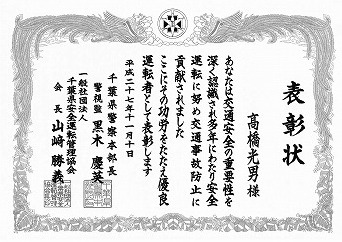 表彰状
高橋光男様
あなたは交通安全の重要性を
深く認識され多年にわたり安全
運転に努め交通事故防止に
貢献されました
ここにその功労をたたえ優良
運転者として表彰します
平成二十七年十一月十日
千葉県警察本部長
警視監 黒木慶英
一般社団法人
千葉県安全運転管理協会
会長 山﨑勝義